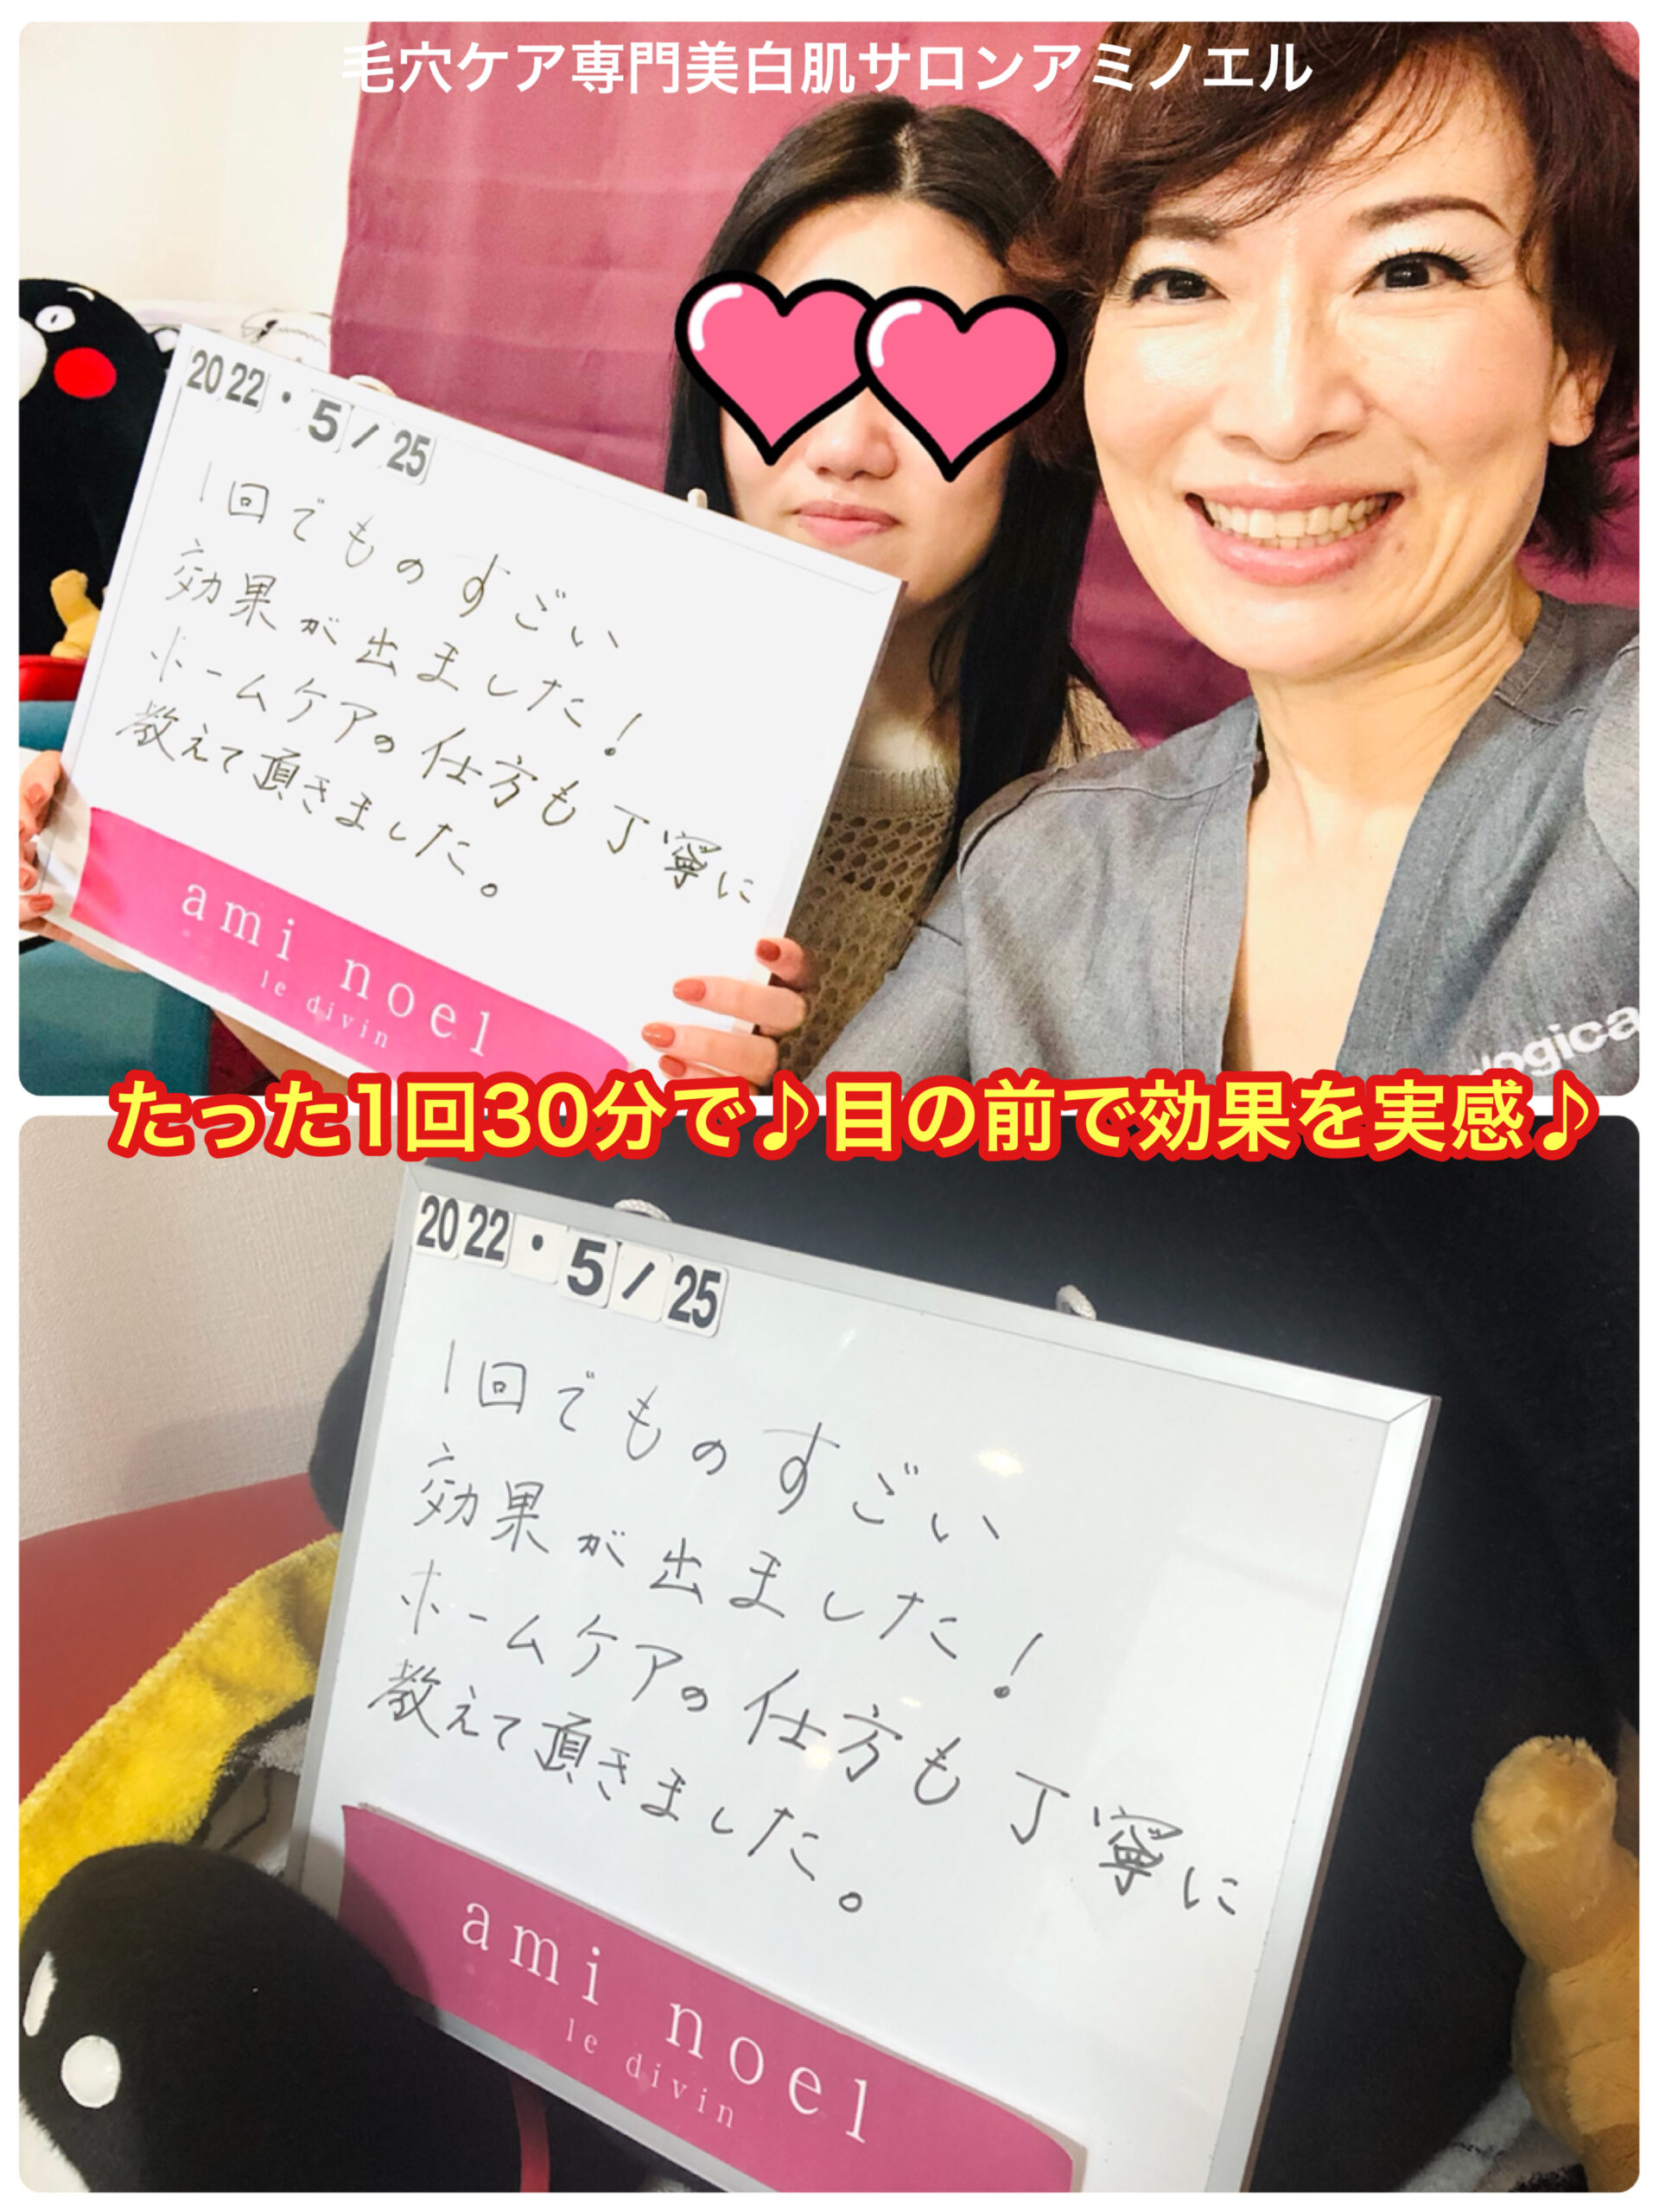 毛穴ケア専門美白肌サロンアミノエル
2022・5/25
1回でものすごい
効果が出ました!
ホームケアの仕方も丁寧に
教えて頂きました。
ami noel
le divin
logica
たった1回30分で♪目の前で効果を実感♪
2022・5/25
1回でものすごい
効果が出ました!
ホームケアの仕方も丁寧に
教えて頂きました。
ami noel
le divin